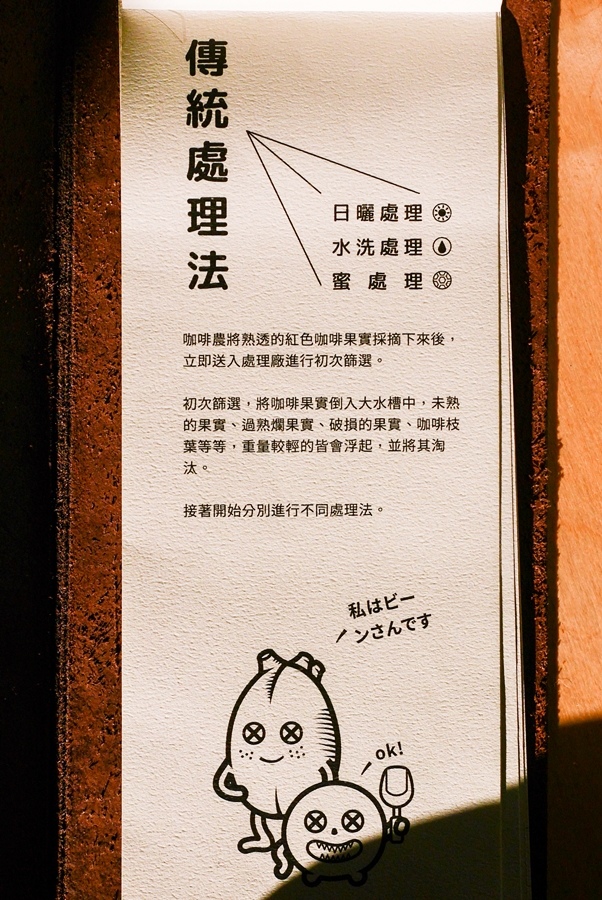 傳統處理法
日曬處理
水洗處理
蜜處理
咖啡農將熟透的紅色咖啡果實採摘下來後，
立即送入處理廠進行初次篩選。
初次篩選，將咖啡果實倒入大水槽中，未熟
的果實、過熟爛果實、破損的果實、咖啡枝
葉等等，重量較輕的皆會浮起，並將其淘
汰。
接著開始分別進行不同處理法。
私はビー
ンさんです
ok!